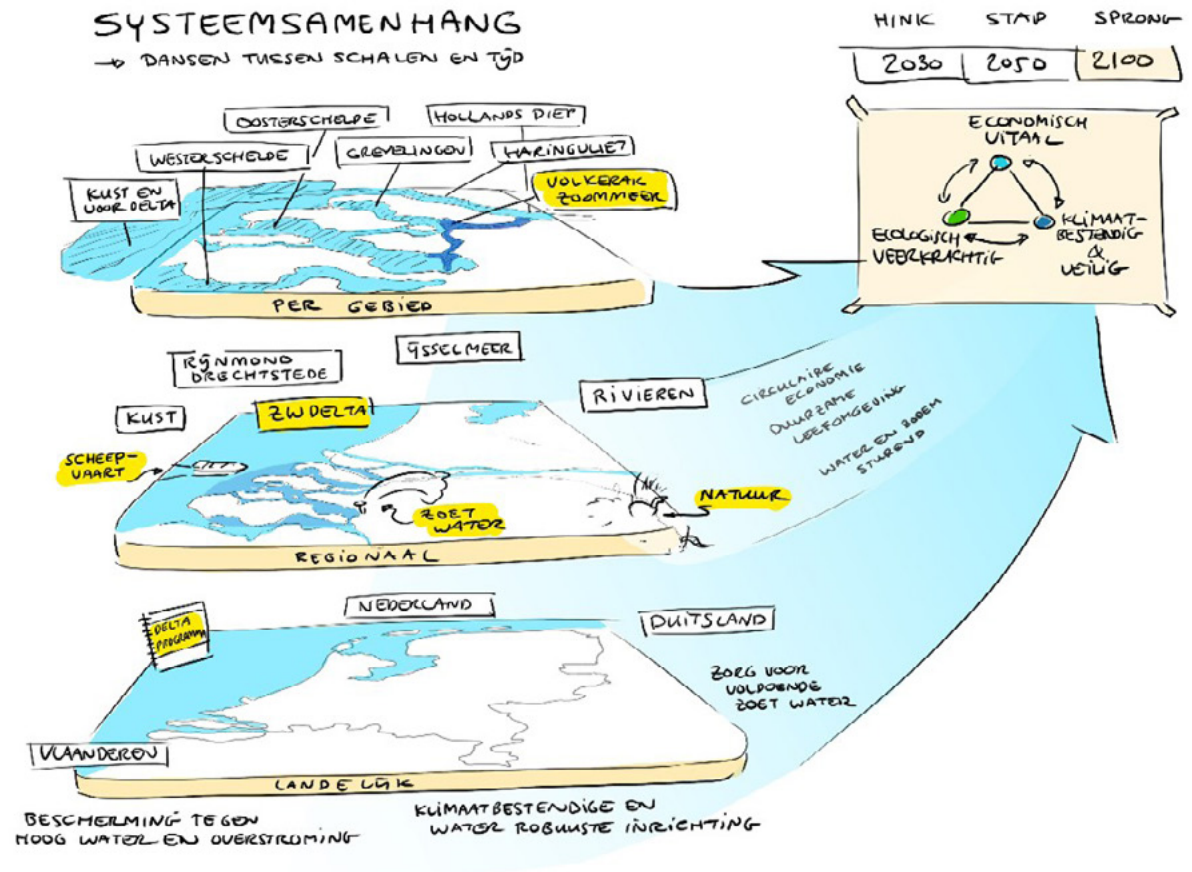 SYSTEEMSAMENHANG
→ DANSEN TUSSEN SCHALEN EN TIJD
HINK STAP SPRONG
2030 2050 2100
ECONOMISCH
VITAAL
ECOLOGISCH
VEERKRACHTIG
KLIMAAT-
BESTENDIG
&
VEILIG
OOSTERSCHELDE
HOLLANDS DIEP
WESTERSCHELDE
GREVELINGEN
HARINGVLIET
KUST EN
VOORDELTA
VOLKERAK
ZOOMMEER
PER GEBIED
RIJNMOND
DRECHTSTEDE
IJSSELMEER
RIVIEREN
KUST
ZW DELTA
SCHEEP-
VAART
ZOET
WATER
NATUUR
REGIONAAL
CIRCULAIRE
ECONOMIE
DUURZAME
LEEFOMGEVING
WATER EN BODEM
STUREND
NEDERLAND
DUITSLAND
DELTA
PROGRAMMA
VLAANDEREN
LANDELIJK
ZORG VOOR
VOLDOENDE
ZOET WATER
BESCHERMING TEGEN
HOOG WATER EN OVERSTROMING
KLIMAATBESTENDIGE EN
WATER ROBUUSTE INRICHTING